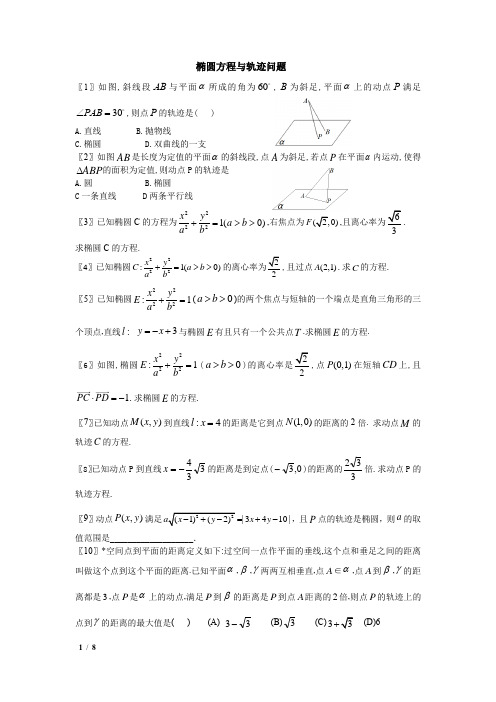 椭圆方程与轨迹问题
〖1〗如图,斜线段 AB 与平面 α 所成的角为 60°, B 为斜足,平面 α 上的动点 P 满足
∠PAB = 30°,则点 P 的轨迹是( )
A.直线 B.抛物线
C.椭圆 D.双曲线的一支
A
P
B
α
〖2〗如图 AB 是长度为定值的平面 α 的斜线段,点 A 为斜足,若点 P 在平面 α 内运动,使得
ΔABP 的面积为定值,则动点 P 的轨迹是
A.圆 B.椭圆
C 一条直线 D 两条平行线
B
A
P
α
〖3〗已知椭圆 C 的方程为 x²/a² + y²/b² = 1(a > b > 0),右焦点为 F(√2,0),且离心率为 √6/3.
求椭圆 C 的方程.
〖4〗已知椭圆 C: x²/a² + y²/b² = 1(a > b > 0) 的离心率为 √2/2,且过点 A(2,1).求 C 的方程.
〖5〗已知椭圆 E: x²/a² + y²/b² = 1 (a > b > 0)的两个焦点与短轴的一个端点是直角三角形的三
个顶点,直线 l: y = −x + 3 与椭圆 E 有且只有一个公共点 T.求椭圆 E 的方程.
〖6〗如图,椭圆 E: x²/a² + y²/b² = 1 (a > b > 0)的离心率是 √2/2,点 P(0,1) 在短轴 CD 上,且
PC · PD = −1.求椭圆 E 的方程.
〖7〗已知动点 M(x, y) 到直线 l: x = 4 的距离是它到点 N(1,0) 的距离的 2 倍. 求动点 M 的
轨迹 C 的方程.
〖8〗已知动点 P 到直线 x = −4/3 √3 的距离是到定点(−√3,0)的距离的 2√3/3 倍.求动点 P 的
轨迹方程.
〖9〗动点 P(x, y) 满足 a√((x−1)² + (y−2)²) =| 3x + 4y −10 |, 且 P 点的轨迹是椭圆,则 a 的取
值范围是____________________.
〖10〗*空间点到平面的距离定义如下:过空间一点作平面的垂线,这个点和垂足之间的距离
叫做这个点到这个平面的距离.已知平面 α,β,γ 两两互相垂直,点 A∈α,点 A 到 β,γ 的距
离都是 3,点 P 是 α 上的动点,满足 P 到 β 的距离是 P 到点 A 距离的 2 倍,则点 P 的轨迹上的
点到 γ 的距离的最大值是( ) (A) 3−√3 (B)√3 (C)3+√3 (D)6
1 / 8